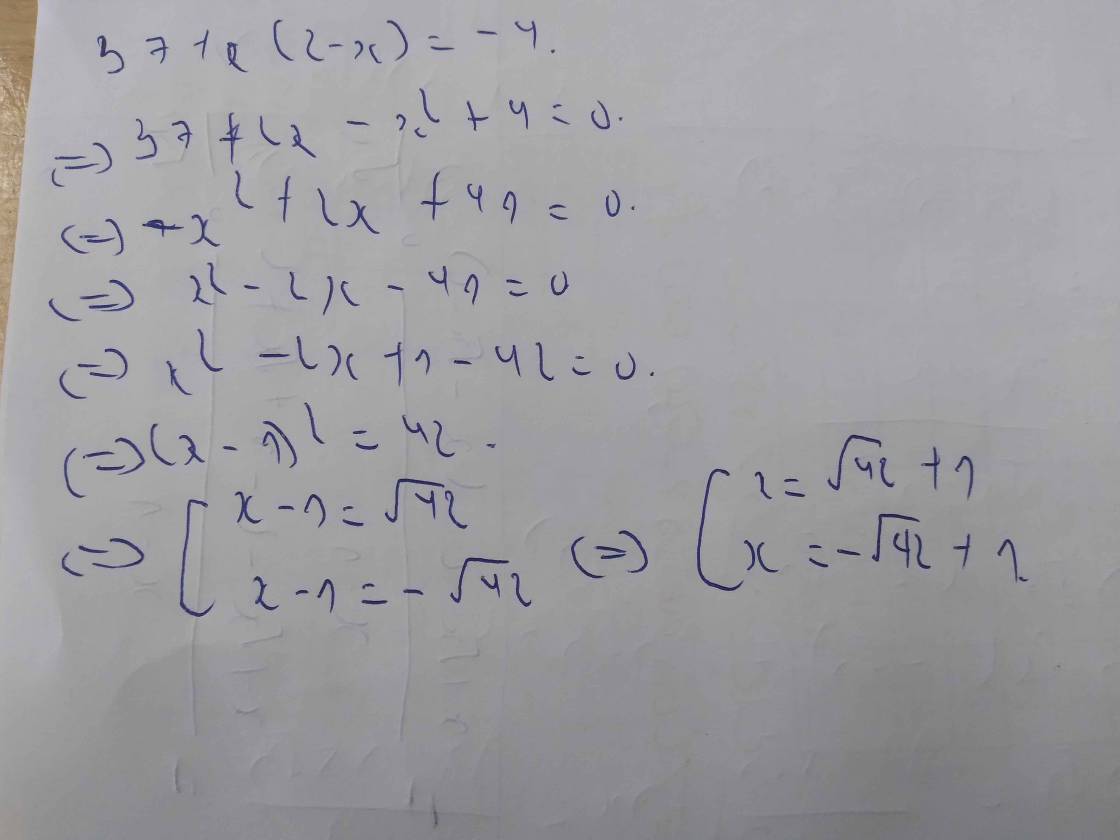 37 + x (2-x) = -4.
(=) 37 + 2x - x² + 4 = 0.
(=) -x² + 2x + 41 = 0.
(=) x² - 2x - 41 = 0
(=) x² - 2x + 1 - 42 = 0.
(=) (x - 1)² = 42.
(=) [ x - 1 = √42
x - 1 = - √42 (=) [ x = √42 + 1
x = -√42 + 1